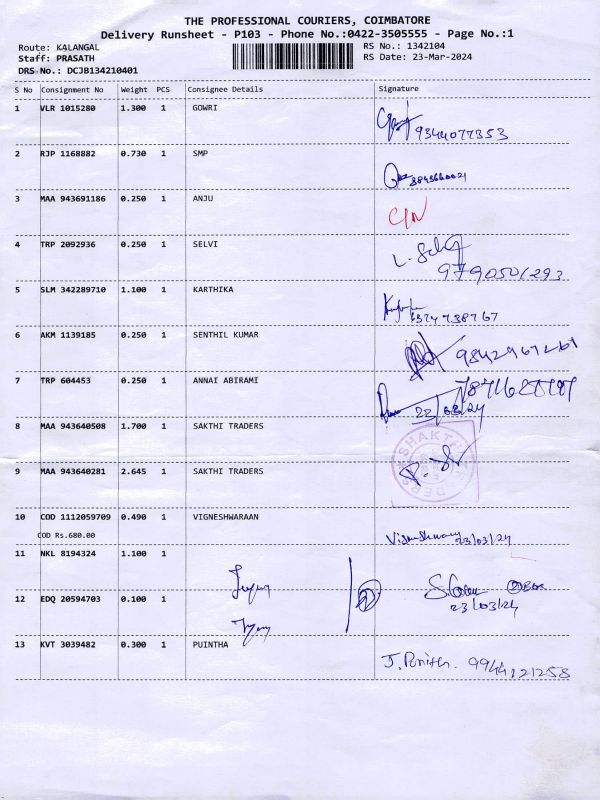 THE PROFESSIONAL COURIERS, COIMBATORE
Delivery Runsheet - P103 - Phone No.:0422-3505555 - Page No.:1
Route: KALANGAL RS No.: 1342104
Staff: PRASATH RS Date: 23-Mar-2024
DRS No.: DCJB134210401
S No Consignment No Weight PCS Consignee Details Signature
1 VLR 1015280 1.300 1 GOWRI
9344077353
2 RJP 1168882 0.730 1 SMP
3 MAA 943691186 0.250 1 ANJU
4 TRP 2092936 0.250 1 SELVI
9790501293
5 SLM 342289710 1.100 1 KARTHIKA
6 AKM 1139185 0.250 1 SENTHIL KUMAR
7 TRP 604453 0.250 1 ANNAI ABIRAMI
8 MAA 943640508 1.700 1 SAKTHI TRADERS
SHAKTHI
9 MAA 943640281 2.645 1 SAKTHI TRADERS
10 COD 1112059709 0.490 1 VIGNESHWARAAN
COD Rs.680.00
23/03/24
11 NKL 8194324 1.100 1
12 EDQ 20594703 0.100 1
23/03/24
13 KVT 3039482 0.300 1 PUINTHA
J. Punitha. 9944121258